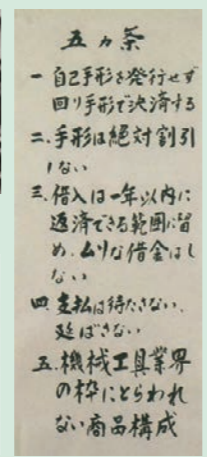 五ヵ条
一 自己手形を発行せず
回り手形で決済する
二.手形は絶対割引
しない
三.借入は一年以内に
返済できる範囲に留
め、ムリな借金はし
ない
四 支払は待たさない、
延ばさない
五.機械工具業界
の枠にとらわれ
ない商品構成